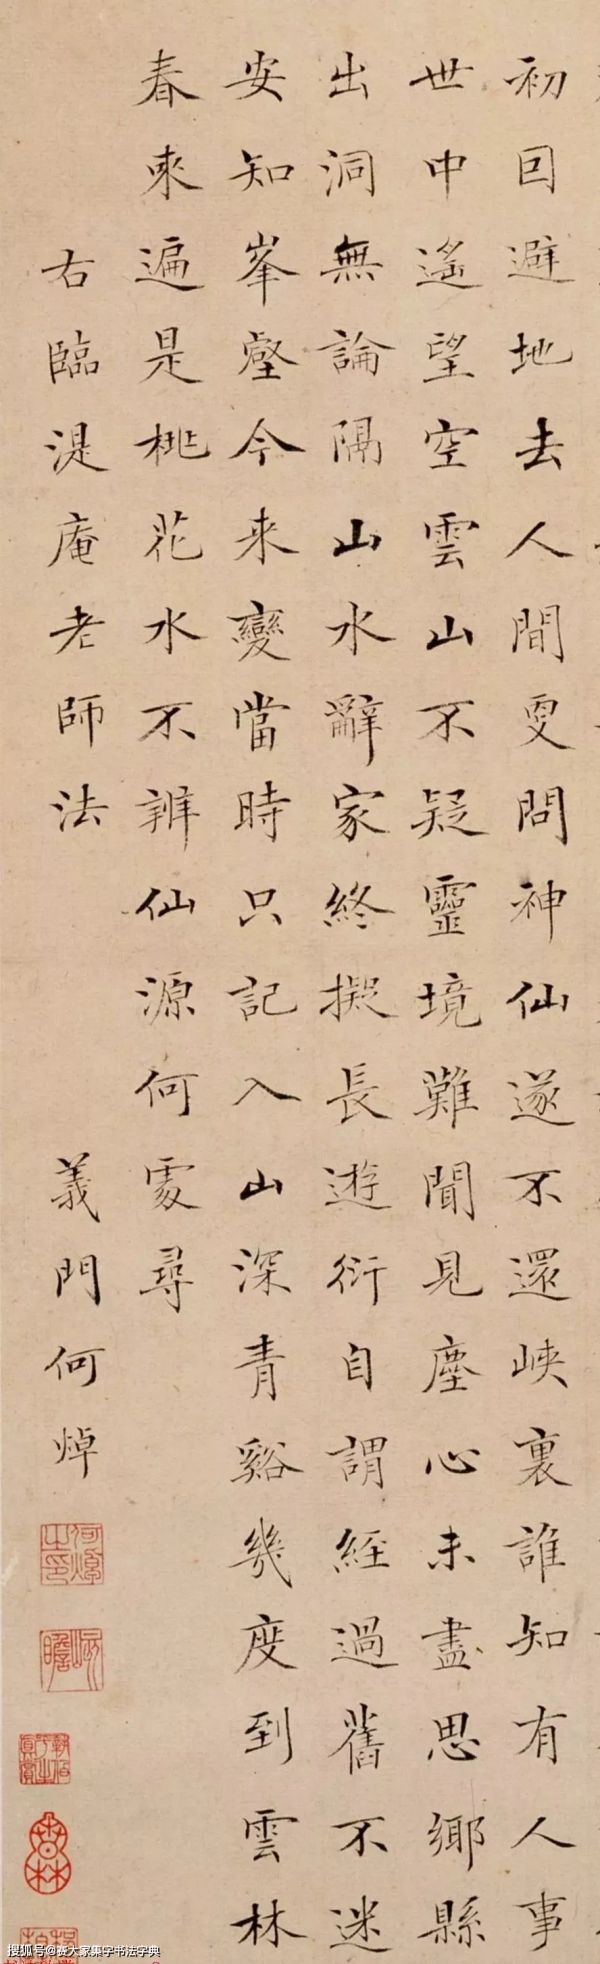 初回避地去人間更問神仙遂不還峽裏誰知有人事
世中遙望空雲山不疑靈境難聞見塵心未盡思鄉縣
出洞無論隔山水辭家終擬長遊衍自謂經過舊不迷
安知峯壑今来變當時只記入山深青谿幾度到雲林
春來遍是桃花水不辨仙源何處尋
右臨湜庵老師法
義門何焯
何焯之印
香林
搜狐号@赛大家集字书法字典